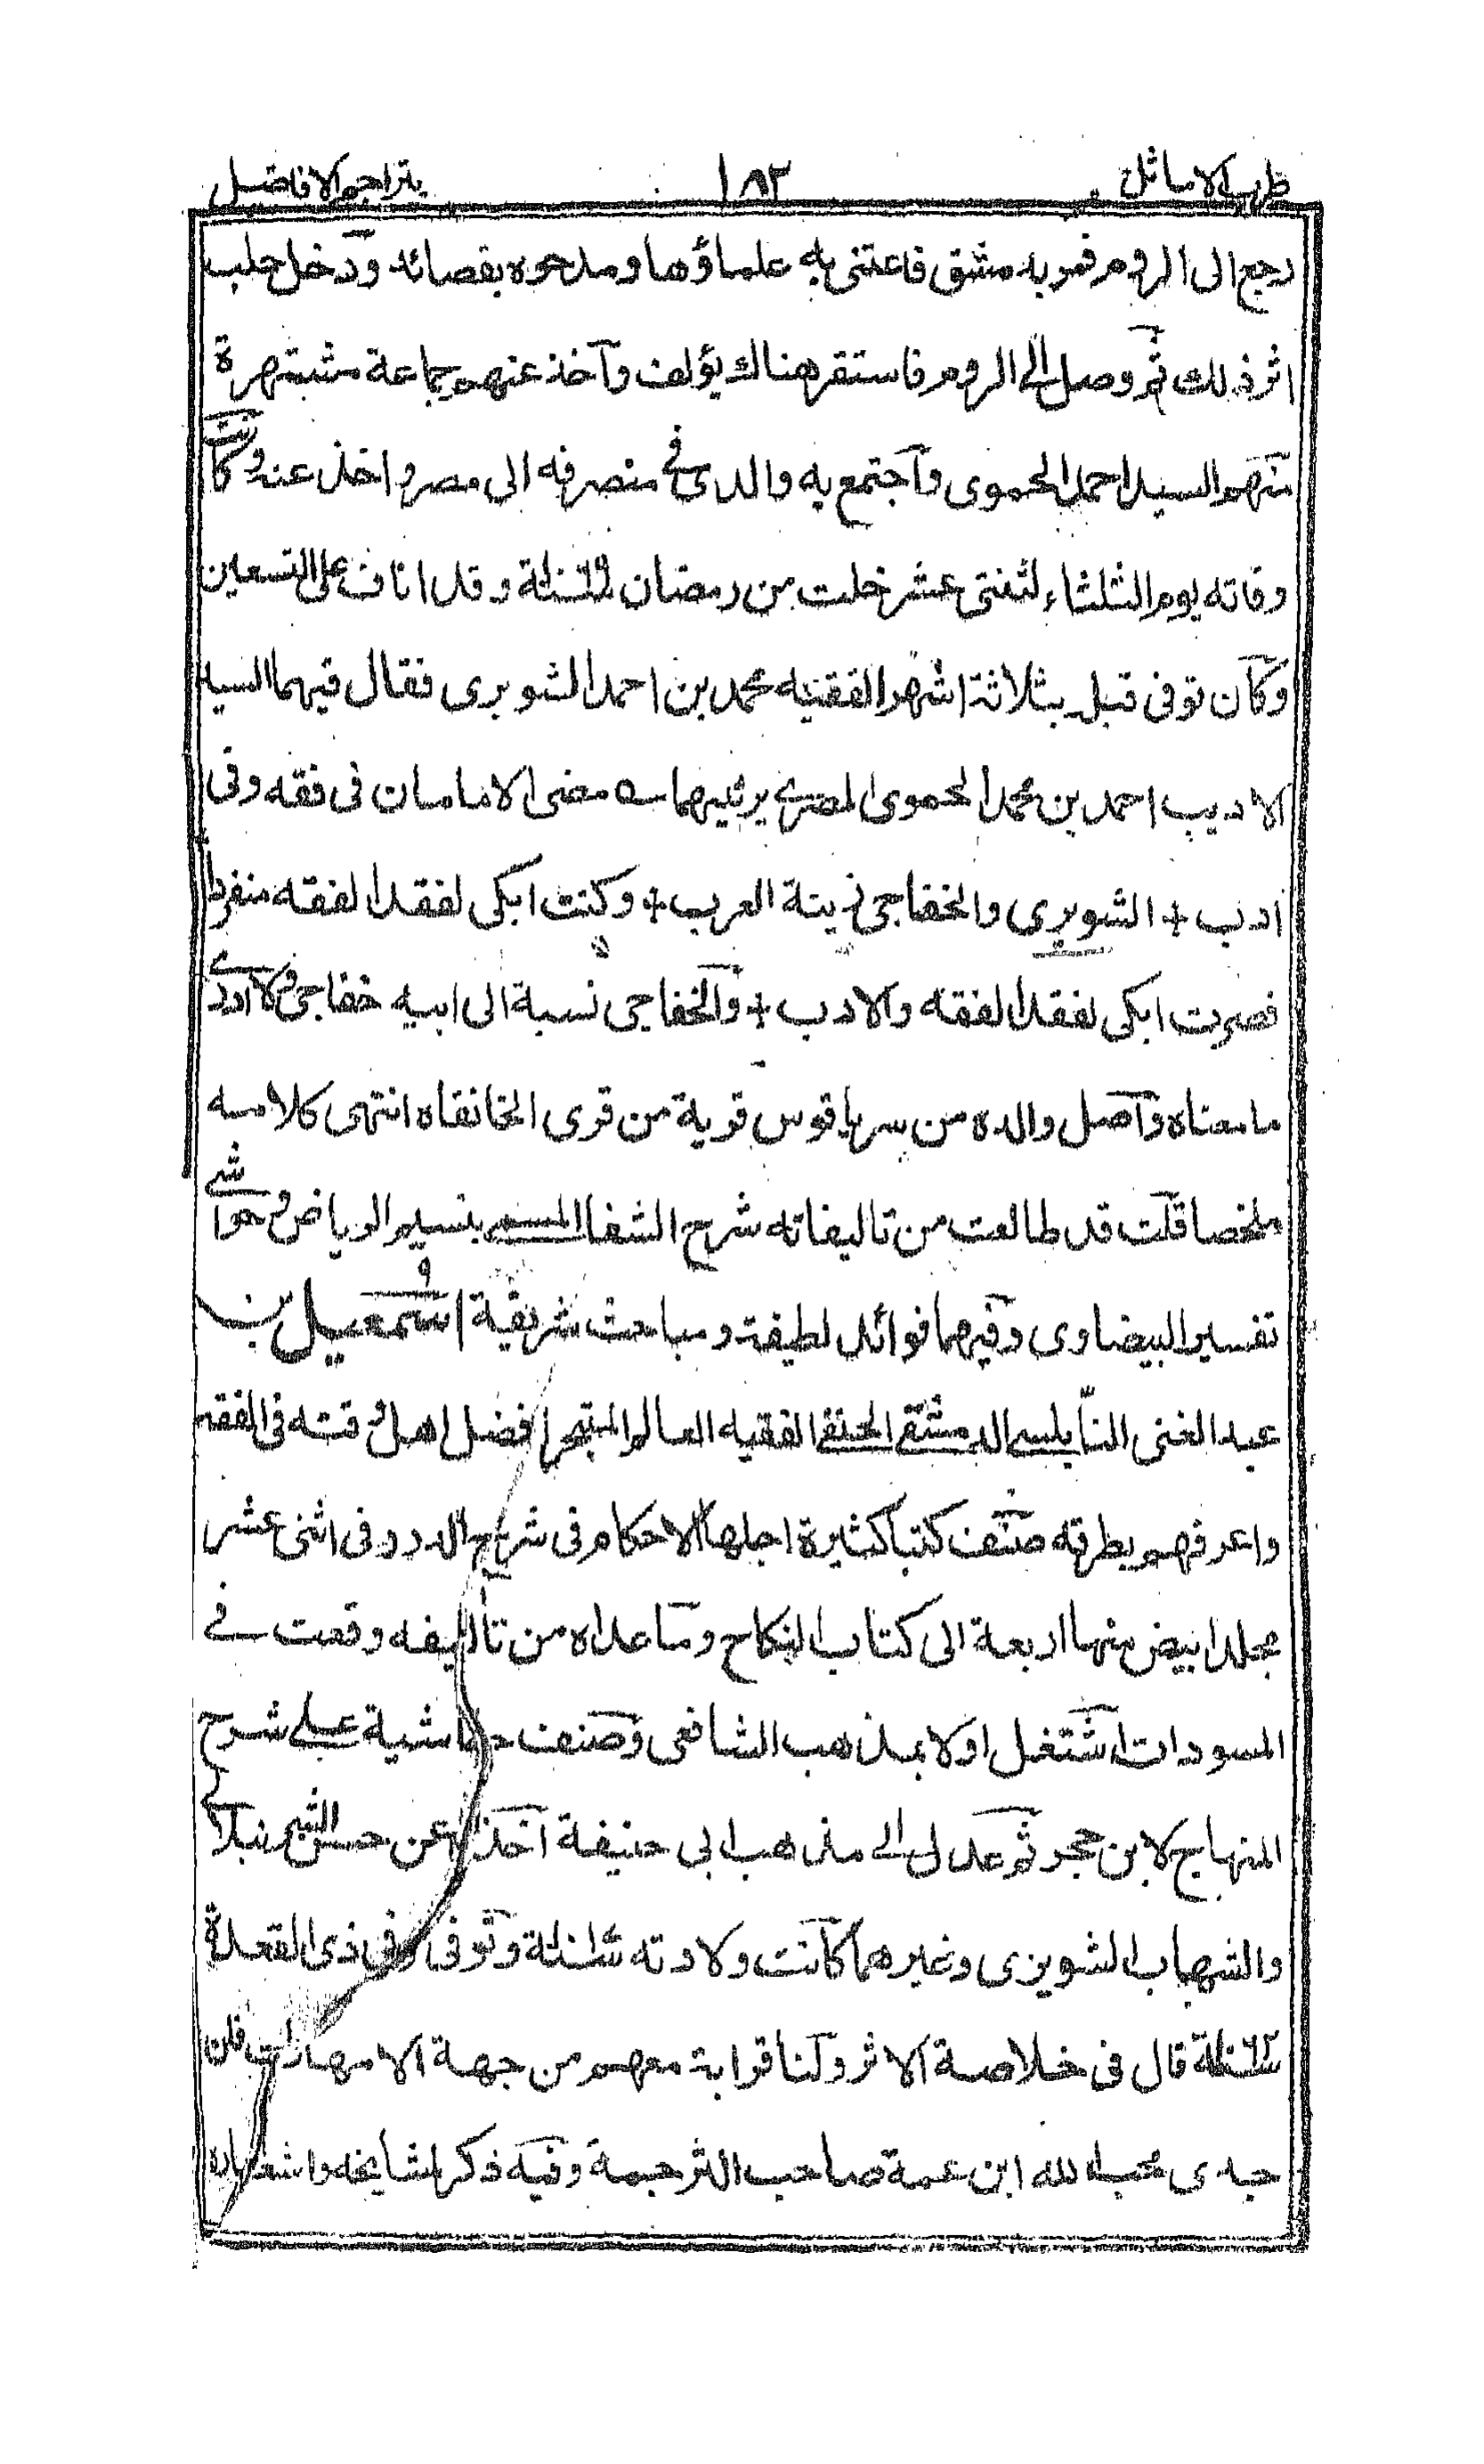 طرب الاماثل ١٨٢ بتراجم الافاضل
رجع الى الروم فمر بدمشق فاعتنى به علماؤها ومدحوه بقصائد ودخل حلب
اثر ذلك ثم وصل الى الروم فاستقر هناك يؤلف واخذ عنهم جماعة مشتهرة
منهم السيد احمد الحموى واجتمع به والدى فى منصرفه الى مصر واخذ عنه وكانت
وفاته يوم الثلثاء لثنتى عشر خلت من رمضان ١٠٦٩ة وقد اناف على التسعين
وكان توفى قبل بثلاثة اشهر الفقيه محمد بن احمد الشوبرى فقال فيهما السيد
الاديب احمد بن محمد الحموى المصرى يرثيهما ؎ مضى الامامان فى فقه وفى
ادب + الشوبرى والخفاجى زينة العرب + وكنت ابكى لفقد الفقه منفردا
فصرت ابكى لفقد الفقه والادب + والخفاجى نسبة الى ابيه خفاجى ولا ادرى
ما معناه واصل والده من سرياقوس قرية من قرى الخانقاه انتهى كلامه
ملخصا قلت قد طالعت من تاليفاته شرح الشفا المسمى بنسيم الرياض وحواشى
تفسير البيضاوى وفيهما فوائد لطيفة ومباحث شريفة اسمعيل بن
عبد الغنى النابلسى الدمشقى الحنفى الفقيه العالم المتبحر افضل اهل وقته فى الفقه
واعرفهم بطرقه صنف كتبا كثيرة اجلها الاحكام فى شرح الدرر فى اثنى عشر
مجلدا بيض منها اربعة الى كتاب النكاح وما عداه من تأليفه وقعت فى
المسودات اشتغل اولا بمذهب الشافعى وصنف حاشية على شرح
المنهاج لابن حجر ثم عدل الى مذهب ابى حنيفة اخذ عن حسن الشرنبلالى
والشهاب الشوبرى وغيرهما كانت ولادته ١٠١٧ة وتوفى فى ذى القعدة
١٠٦٢ة قال فى خلاصة الاثر وكنا قرابة معهم من جهة الامهات فان
جدى محب الله ابن عمة صاحب الترجمة وفيه ذكر مشايخه واشعاره